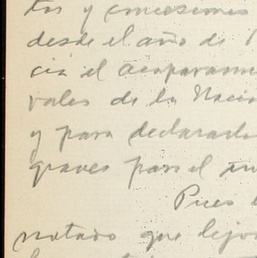 tos y concesiones
desde el año de 1
cia el acaparami
vales de la Nació
y para declararlo
graves para el in
Pues
notado que lejos